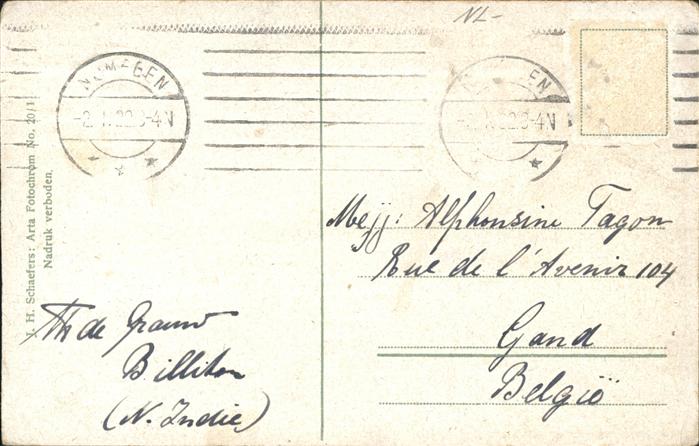 NL-
NIJMEGEN
-2.1.22.3-4N
EN
1.22.3-4N
J. H. Schaefers: Arta Fotochrom No. 20/1
Nadruk verboden.
Mejj: Alphonsine Tagon
Rue de l'Avenir 104
Gand
Belgïe
Th de Graauw
Billiton
(N. Indie)